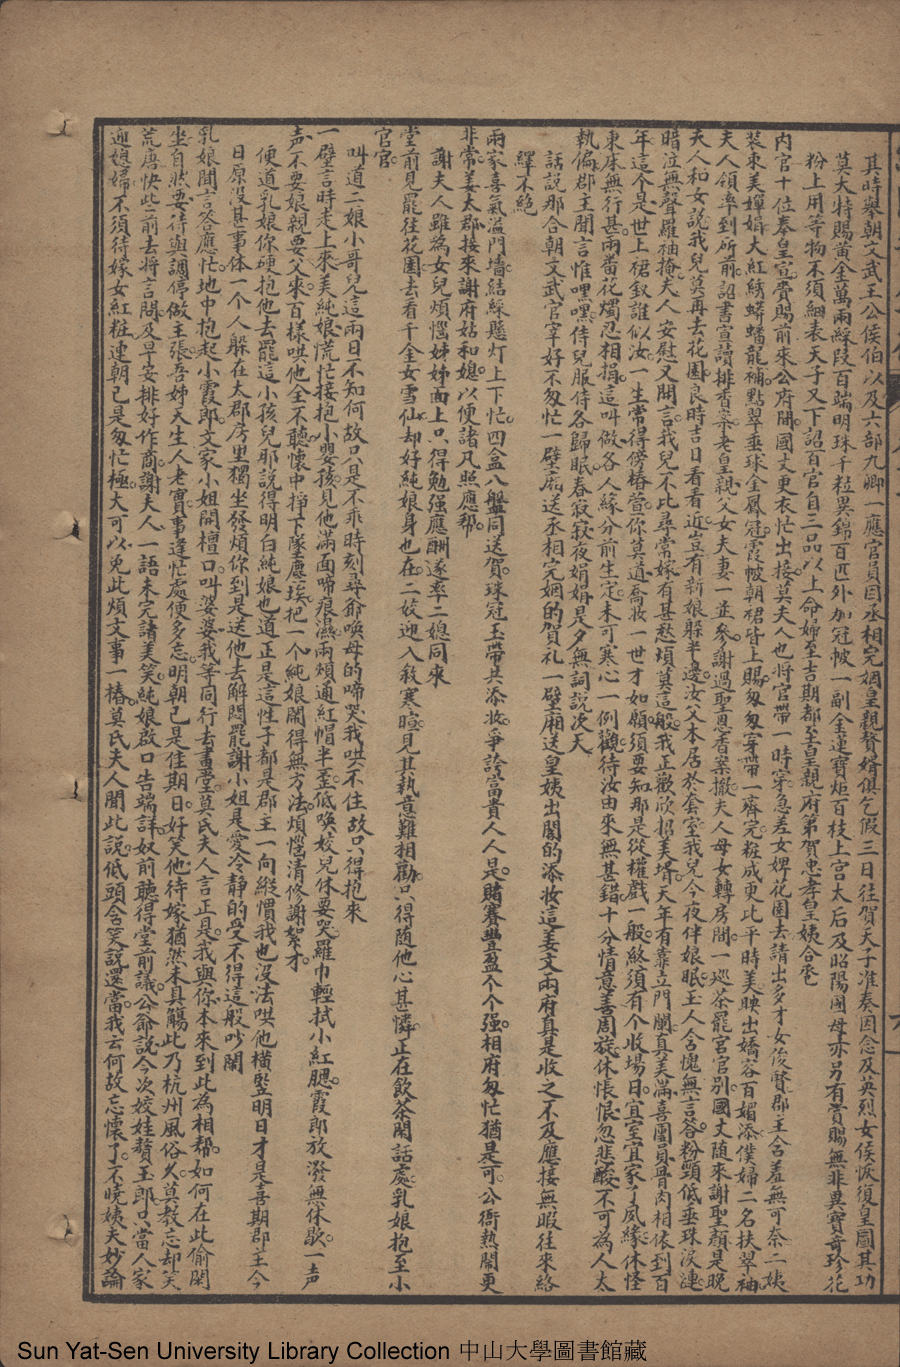 其時舉朝文武王公侯伯以及六部九卿一應官員因丞相完姻皇親贅婿俱乞假三日往賀天子准奏因念及英烈女侯恢復皇圖其功
莫大特賜黃金萬兩綵段百端明珠千粒異錦百匹外加冠帔一副金蓮寶炬百枝上宮太后及昭陽國母亦另有賞賜無非異寶奇珍花
粉上用等物不須細表天子又下詔百官自三品以上命婦至吉期都至皇親府第賀忠孝皇姨合巹
內官十位奉皇宣賷賜前來公府間國丈更衣忙出接莫夫人也將官帶一時穿急差女婢花園去請出多才女俊賢郡主含羞無可奈二姨
裝束美嬋娟大紅綉蟒蟠龍補點翠垂珠金鳳冠霞帔朝裙皆上賜匆匆穿帶一齊完粧成更比平時美映出嬌容百媚添僕婦二名扶翠袖
夫人領率到所前詔書宣讀排香案老皇親父女夫妻一並參謝過聖恩香案撤夫人母女轉房間一廵茶罷官官別國丈随來謝聖顏是晚
夫人和女說我兒莫再去花園良時吉日看看近豈有新娘躲半邊汝父本居於套室我兒今夜伴娘眠玉人含愧無言答粉頸低垂珠淚漣
暗泣無聲羅袖掩夫人安慰又開言我兒不比尋常嫁有甚愁煩莫這般我正歡欣招美壻天年有靠立門闌真美滿喜團員骨肉相依到百
年這个是世上裙釵誰似汝一生常得傍椿萱你莫道喬妝一世才如願須要知那是從權戲一般終須有个收場日宜室宜家了夙緣休怪
東床無行甚兩畨花燭忍相捐這叫做各人緣分前生定未可寒心一例觀待汝由來無甚錯十分情意善周旋休悵恨忽悲酸不可為人太
執偏郡王聞言惟哩嘿侍兒服侍各歸眠春寂寂夜娟娟是夕無詞說次天
話說那合朝文武官宰好不匆忙一壁廂送丞相完姻的賀礼一壁廂送皇姨出閣的添妝這姜文兩府真是收之不及應接無暇往來絡
繹不絕
兩家喜氣溢門墻結綵懸灯上下忙四盒八盤同送賀珠冠玉帶共添妝爭誇當貴人人是賭賽豐盈个个强相府匆忙猶是可公衙熱鬧更
非常姜太郡接來謝府姑和媳以便諸凡照應帮
謝夫人雖為女兒煩惱姊姊面上只得勉强應酬遂率二媳同來
堂前見罷往花園去看千金女雪仙却好純娘身也在二姣迎入敘寒暄見其執意難相勸只得随他心甚憐正在飲茶閑話處乳娘抱至小
官官
叫道二娘小哥兒這兩日不知何故只是不乖時刻尋爺喚母的啼哭我哄不住故只得抱來
一壁言時走上來美純娘慌忙接抱小嬰孩見他滿面啼痕濕兩頰通紅帽半歪低喚姣兒休要哭羅巾輕拭小紅腮霞郎放潑無休歇一声
声不要娘親要父來百樣哄他全不聽懷中掙下墜塵埃把一个純娘鬧得無方法煩惱清修謝絮才
便道乳娘你硬抱他去罷這小孩兒那說得明白純娘也道正是這性子都是郡主一向縱慣我也沒法哄他橫豎明日才是喜期郡主今
日原沒甚事体一个人躲在太郡房里獨坐發煩你到是送他去解悶罷謝小姐是愛冷靜的受不得這般吵鬧
乳娘聞言答應忙地中抱起小霞郎文家小姐開檀口叫婆婆我等同行去畫堂莫氏夫人言正是我與你本來到此為相帮如何在此偷閑
坐自然要待與調停做主張吾姊天生人老實事逢忙處便多忘明朝已是佳期日好笑他待嫁猶然未具觴此乃杭州風俗久莫教忘却笑
荒唐快些前去將言問及早安排好作商謝夫人一語未完諸美笑純娘啟口告端詳奴前聽得堂前議公爺說今次姣娃贅玉郎只當人家
迎媳婦不須待嫁女紅粧連朝已是匆忙極大可以免此煩文事一樁莫氏夫人聞此說低頭含笑說還當我云何故忘懷了不曉姨夫妙論
Sun Yat-Sen University Library Collection 中山大學圖書館藏